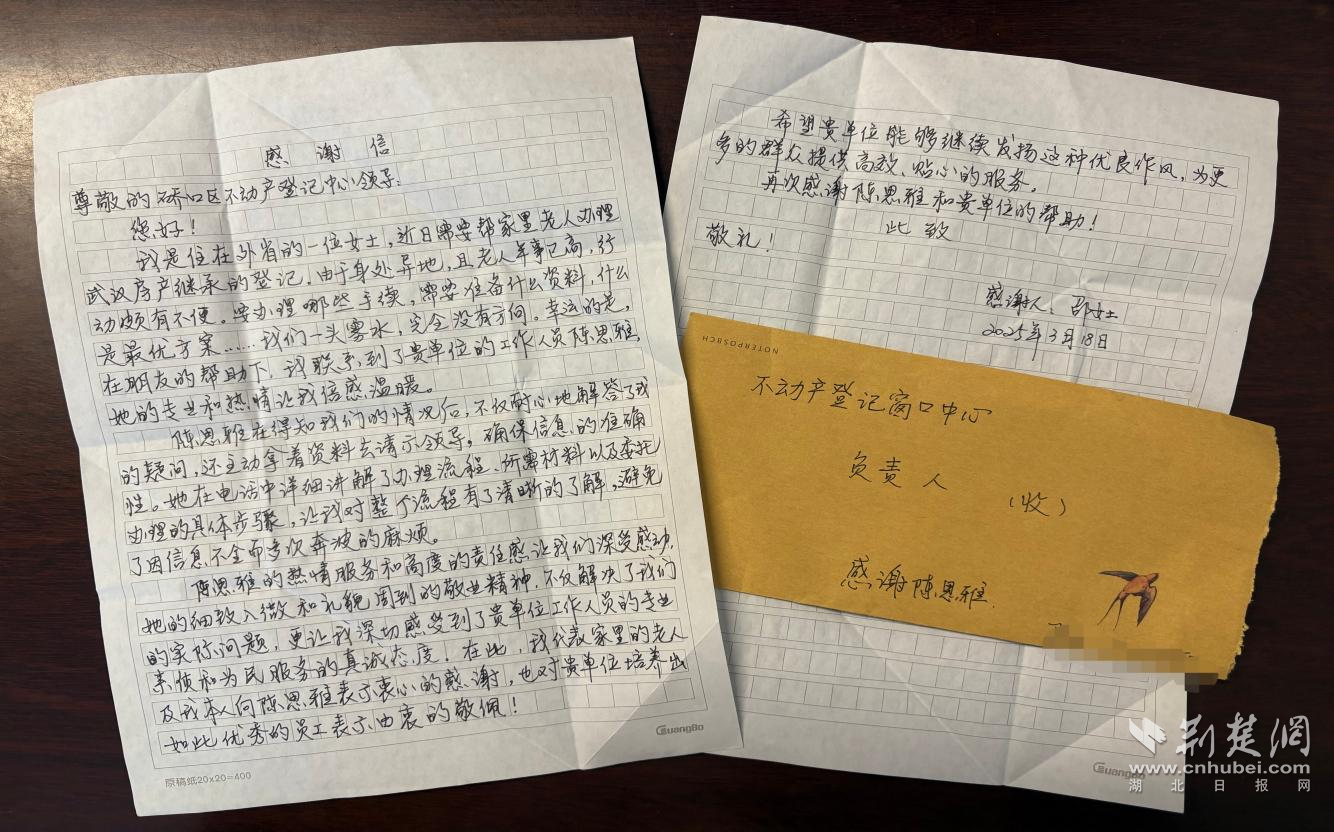 感谢信
尊敬的硚口区不动产登记中心领导：
您好！
我是住在外省的一位女士，近日需要帮家里老人办理
武汉房产继承的登记，由于身处异地，且老人年事已高，行
动颇有不便。要办理哪些手续，需要准备什么资料，什么
是最优方案……我们一头雾水，完全没有方向。幸运的是，
在朋友的帮助下，我联系到了贵单位的工作人员陈思雅，
她的专业和热情让我倍感温暖。
陈思雅在得知我们的情况后，不仅耐心地解答了我
的疑问，还主动拿着资料去请示领导，确保信息的准确
性。她在电话中详细讲解了办理流程、所需材料以及委托
办理的具体步骤，让我对整个流程有了清晰的了解，避免
了因信息不全而多次奔波的麻烦。
陈思雅的热情服务和高度的责任感让我们深受感动，
她的细致入微和礼貌周到的敬业精神，不仅解决了我们
的实际问题，更让我深切感受到了贵单位工作人员的专业
素质和为民服务的真诚态度，在此，我代表家里的老人
及我本人向陈思雅表示衷心的感谢，也对贵单位培养出
如此优秀的员工表示由衷的敬佩！
GuangBo
原稿纸20x20=400
希望贵单位能够继续发扬这种优良作风，为更
多的群众提供高效、贴心的服务。
再次感谢陈思雅和贵单位的帮助！
此致
敬礼！
感谢人：邵女士
2025年3月18日
NOTERPOSBCH
不动产登记窗口中心
负责人
（收）
感谢陈思雅
GuangBo
荆楚网
www.cnhubei.com
湖北日报网